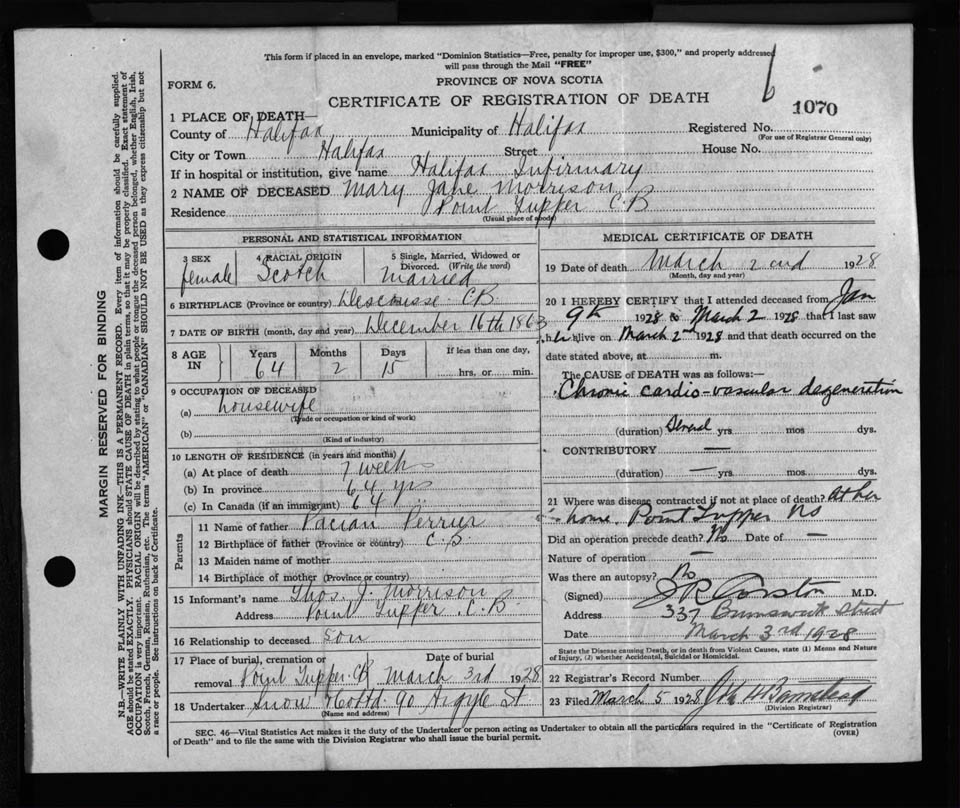 This form if placed in an envelope, marked "Dominion Statistics—Free, penalty for improper use, $300," and properly addressed
will pass through the Mail "FREE"
FORM 6.
PROVINCE OF NOVA SCOTIA
CERTIFICATE OF REGISTRATION OF DEATH
1070
1 PLACE OF DEATH—
County of Halifax Municipality of Halifax Registered No.
(For use of Registrar General only)
City or Town Halifax Street House No.
If in hospital or institution, give name Halifax Infirmary
2 NAME OF DECEASED Mary Jane Morrison
Residence Point Tupper C.B
(Usual place of abode)
PERSONAL AND STATISTICAL INFORMATION
3 SEX female
4 RACIAL ORIGIN Scotch
5 Single, Married, Widowed or Divorced. (Write the word) Married
6 BIRTHPLACE (Province or country) Descousse CB
7 DATE OF BIRTH (month, day and year) December 16th 1863
8 AGE IN Years 64 Months 2 Days 15 If less than one day, hrs. or min.
9 OCCUPATION OF DECEASED
(a) housewife
(Trade or occupation or kind of work)
(b)
(Kind of industry)
10 LENGTH OF RESIDENCE (in years and months)
(a) At place of death 7 weeks
(b) In province 64 yrs
(c) In Canada (if an immigrant) 64 "
Parents
11 Name of father Perrier
12 Birthplace of father (Province or country) C.B.
13 Maiden name of mother
14 Birthplace of mother (Province or country)
15 Informant's name Thos. J. Morrison
Address Point Tupper C.B.
16 Relationship to deceased Son
17 Place of burial, cremation or removal Point Tupper CB Date of burial March 3rd 1928
18 Undertaker Snow & Co Ltd. 90 Argyle St
(Name and address)
MEDICAL CERTIFICATE OF DEATH
19 Date of death March 2nd 1928
(Month, day and year)
20 I HEREBY CERTIFY that I attended deceased from Jan
9th 1928 to March 2 1928 that I last saw
her alive on March 2nd 1928 and that death occurred on the
date stated above, at m.
The CAUSE OF DEATH was as follows:—
Chronic cardio-vascular degeneration
(duration) Several yrs. mos. dys.
CONTRIBUTORY —
(duration) — yrs. mos. dys.
21 Where was disease contracted if not at place of death? At her
home Point Tupper NS
Did an operation precede death? No Date of —
Nature of operation —
Was there an autopsy? No
(Signed) J R Corston M.D.
Address 337 Brunswick Street
Date March 3rd 1928
State the Disease causing Death, or in death from Violent Causes, state (1) Means and Nature
of Injury, (2) whether Accidental, Suicidal or Homicidal.
22 Registrar's Record Number
23 Filed March 5 1928 Barnstead
(Division Registrar)
SEC. 46—Vital Statistics Act makes it the duty of the Undertaker or person acting as Undertaker to obtain all the particulars required in the "Certificate of Registration
of Death" and to file the same with the Division Registrar who shall issue the burial permit.
(OVER)
MARGIN RESERVED FOR BINDING
N.B.—WRITE PLAINLY WITH UNFADING INK—THIS IS A PERMANENT RECORD. Every item of information should be carefully supplied.
AGE should be stated EXACTLY. PHYSICIANS should STATE CAUSE OF DEATH in plain terms, so that it may be properly classified. Exact statement of
OCCUPATION is very important. RACIAL ORIGIN will be described by stating to what people or tongue the deceased person belonged, whether English, Irish,
Scotch, French, German, Russian, Ruthenian, etc. The terms "AMERICAN" or "CANADIAN" SHOULD NOT BE USED as they express citizenship but not
a race or people. See instructions on back of Certificate.